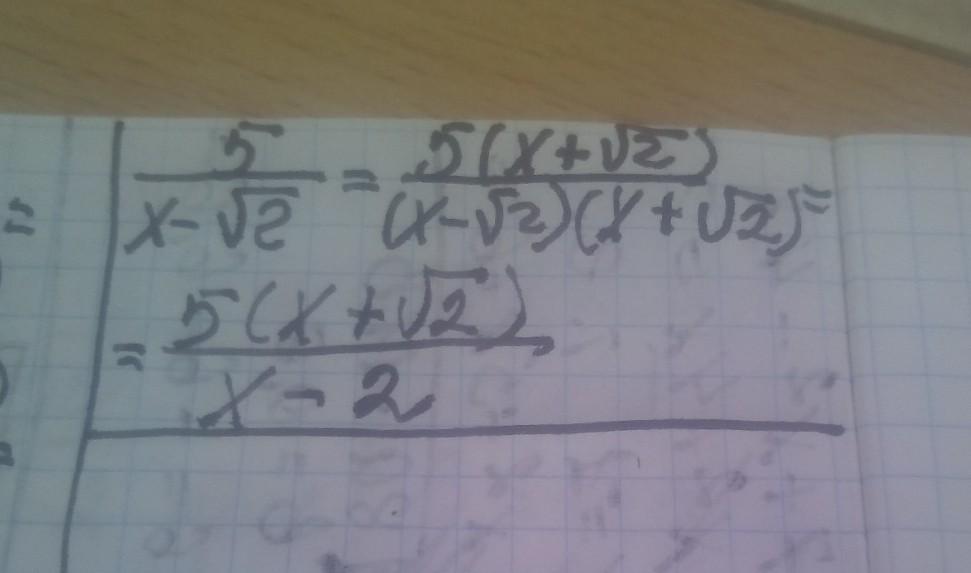 5/(x-√2) = 5(x+√2)/((x-√2)(x+√2)) =
= 5(x+√2)/(x-2)